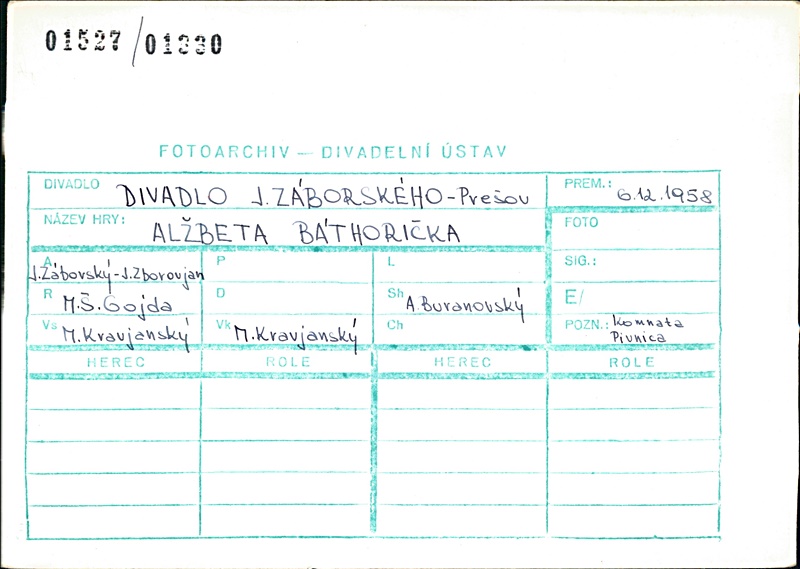 01527/01330
FOTOARCHIV — DIVADELNÍ ÚSTAV
DIVADLO DIVADLO J. ZÁBORSKÉHO - Prešov PREM.: 6.12.1958
NÁZEV HRY: ALŽBETA BÁTHORIČKA FOTO
A J. Záborský - J. Zborovjan P L SIG.:
R M. Š. Gojda D Sh A. Buranovský E/
Vs M. Kravjanský Vk M. Kravjanský Ch POZN.: Komnata
Pivnica
HEREC ROLE HEREC ROLE